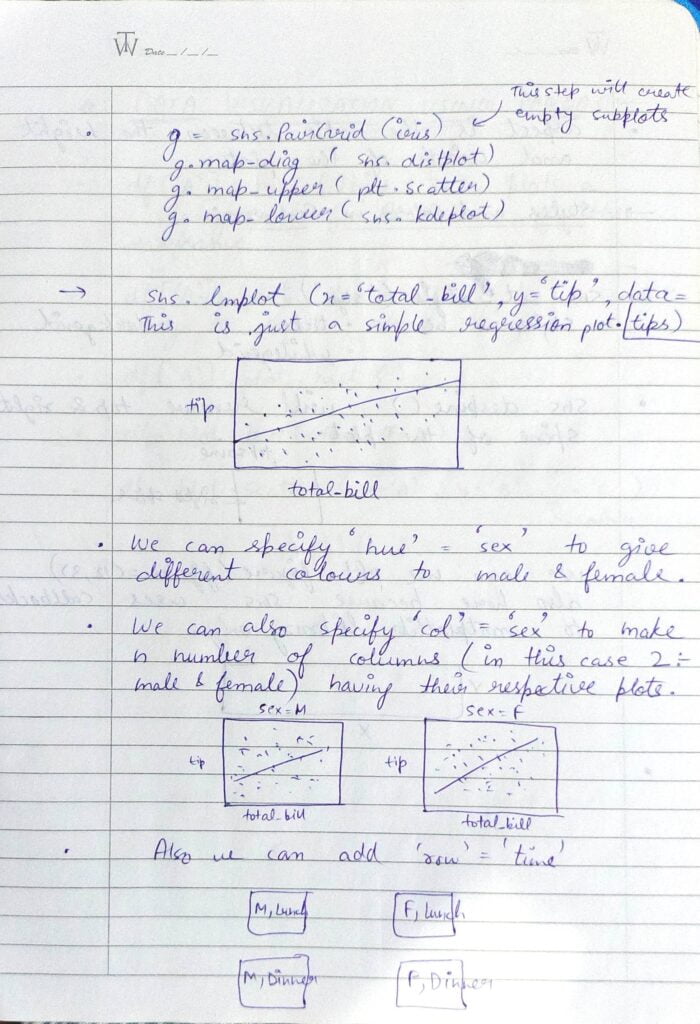 TW Date __/__/__
This step will create
empty subplots
• g = sns. PairGrid (iris)
g. map-diag ( sns. distplot)
g. map-upper ( plt. scatter)
g. map-lower ( sns. kdeplot)
→ sns. lmplot (x = "total-bill", y = "tip", data =
This is just a simple regression plot. tips)
tip
total-bill
• We can specify 'hue' = 'sex' to give
different colours to male & female.
• We can also specify 'col' = 'sex' to make
n number of columns (in this case 2 :-
male & female) having their respective plots.
sex = M sex = F
tip tip
total-bill total-bill
• Also we can add 'row' = 'time'
M, Lunch F, Lunch
M, Dinner F, Dinner